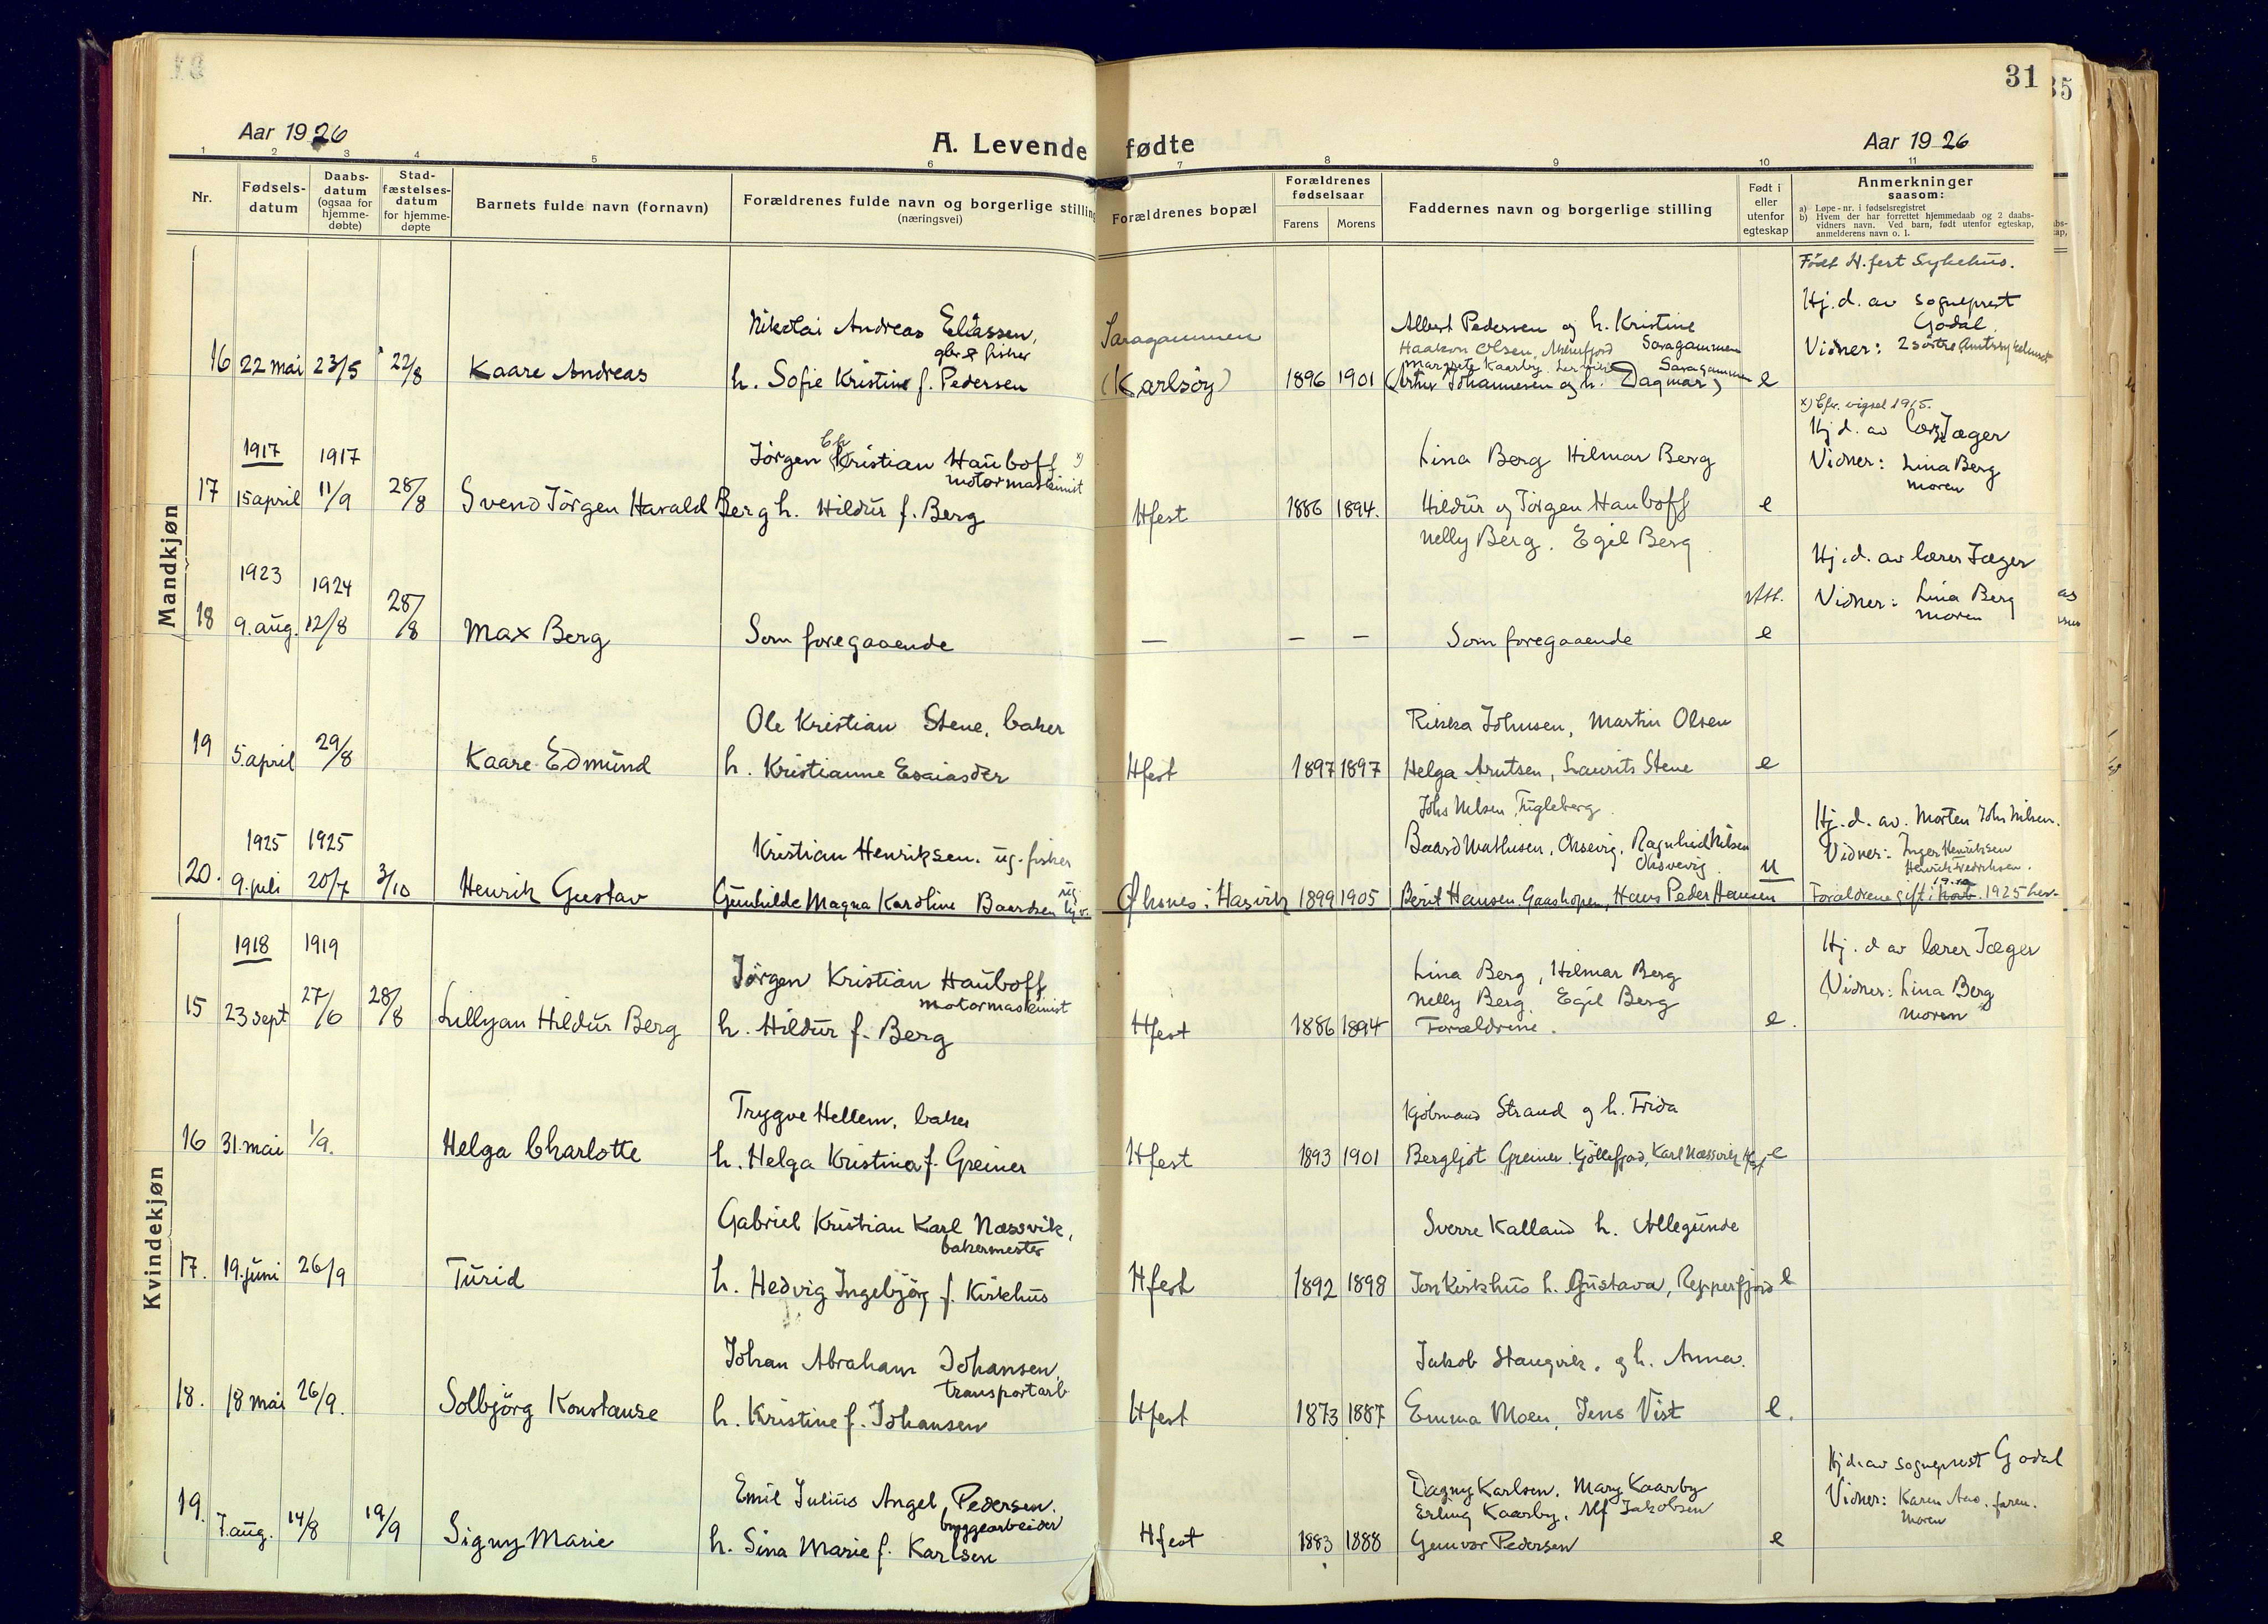 31
35
Aar 1926
A. Levende fødte
Aar 1926
1 2 3 4 5 6 7 8 9 10 11
Nr.
Fødsels-
datum
Daabs-
datum
(ogsaa for
hjemme-
døbte)
Stad-
fæstelses-
datum
for hjemme-
døpte
Barnets fulde navn (fornavn)
Forældrenes fulde navn og borgerlige stilling
(næringsvei)
Forældrenes bopæl
Forældrenes
fødselsaar
Farens
Morens
Faddernes navn og borgerlige stilling
Født i
eller
utenfor
egteskap
Anmerkninger
saasom:
a) Løpe-nr. i fødselsregistret
b) Hvem der har forrettet hjemmedaab og 2 daabs-
vidners navn. Ved barn, født utenfor egteskap,
anmelderens navn o. l.
Mandkjøn
16 22 mai 23/5 22/8 Kaare Andreas
Nikolai Andreas Eliassen,
gbr & fisker
h. Sofie Kristine f. Pedersen
Saragammen
(Karlsöy)
1896 1901
Albert Pedersen og h. Kristine
Saragammen
Haakon Olsen,
Margrete Kaarby.
Saragammen
(Artur Johannesen og h. Dagmar)
e
Född H.fest Sykehus.
Hj. d. av sogneprest
Godal
Vidner: 2 söstre
1917 1917
17 15 april 11/9 28/8 Svend Jörgen Harald Berg
Ch
Jörgen Kristian Hauboff x)
motormaskinist
h. Hildur f. Berg
Hfest
1886 1894.
Lina Berg Hilmar Berg
Hildur og Jörgen Hauboff
Nelly Berg. Egil Berg
e
x) Cfr. vigsel 1915.
Hj. d. av lærer Jæger
Vidner: Lina Berg
moren
1923 1924
18 9. aug. 12/8 28/8 Max Berg
Som foregaaende
— — —
Som foregaaende
e
Hj. d. av lærer Jæger
Vidner: Lina Berg
moren
19 5. april 29/8 Kaare Edmund
Ole Kristian Stene, baker
h. Kristianne Esaiasder
Hfest
1897 1897
Rikka Johnsen, Martin Olsen
Helga Arntsen, Laurits Stene
e
1925 1925
20. 9. juli 20/7 3/10 Henrik Gustav
Kristian Henriksen. ug. fisker
Gunhilde Magna Karoline Baardsen ug.
Øksnes i Hasvik
1899 1905
Johs Nilsen, Fugleberg.
Baard Mathisen, Oksevig, Ragnhild Nilsen
Oksevig
Berit Hansen. Gaashopen, Hans Peder Hansen
u
Hj. d. av. Morten Johs Nilsen.
Vidner: Inger Henriksen
Henrik Fredriksen.
Forældrene gift 1925 her.
Kvindekjøn
1918 1919
15 23 sept 27/6 28/8 Lillyan Hildur Berg
Jörgen Kristian Hauboff
motormaskinist
h. Hildur f. Berg
Hfest
1886 1894
Lina Berg, Hilmar Berg
Nelly Berg. Egil Berg
Forældrene.
e.
Hj. d av lærer Jæger
Vidner: Lina Berg
moren
16 31. mai 1/9. Helga Charlotte
Trygve Hellem, baker
h. Helga Kristine f. Greiner
Hfest
1893 1901
Kjöbmand Strand og h. Frida
Bergljot Greiner Kjöllefjord, Karl Næssvik Hfest
e
17. 19. juni 26/9 Turid
Gabriel Kristian Karl Næssvik,
bakermester
h. Hedvig Ingebjörg f. Kirkhus
Hfest
1892 1898
Sverre Kalland h. Allegunde
Jon Kirkhus h. Gustava, Repperfjord
e
18. 18 mai 26/9. Solbjörg Konstanse
Johan Abraham Johansen,
transportarb
h. Kristine f. Johansen
Hfest
1873 1887
Jakob Stangvik, og h. Anna.
Emma Moen, Jens Vist
e.
19. 7. aug. 14/8 19/9 Signy Marie
Emil Julius Angel Pedersen.
byggearbeider
h. Sina Marie f. Karlsen
Hfest
1883 1888
Dagny Karlsen, Mary Kaarby
Erling Kaarby, Alf Jakobsen
Gunvor Pedersen
e
Hj. d. av sogneprest Godal
Vidner: Karen Aas. faren.
moren